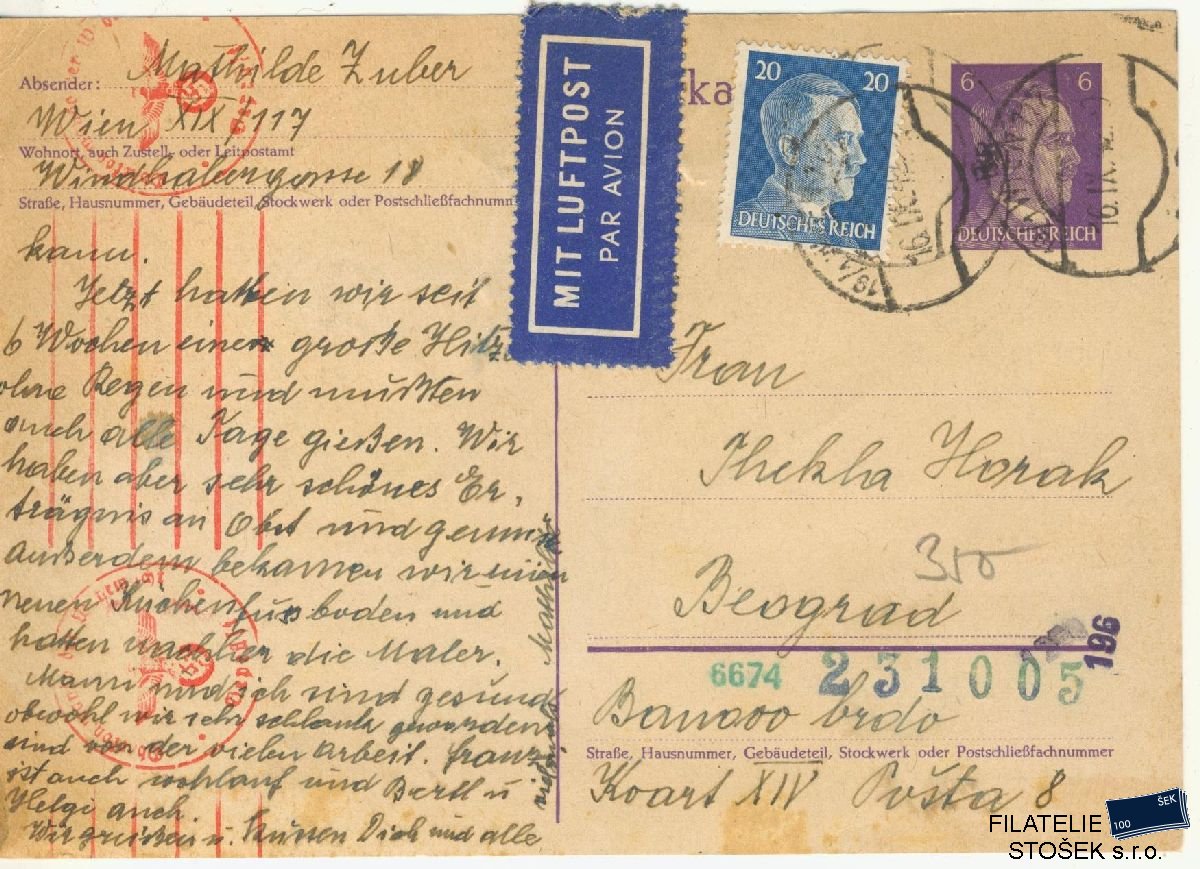 Absender: Mathilde Zuber
Wien XIX/117
Wohnort, auch Zustell- oder Leitpostamt
18
Straße, Hausnummer, Gebäudeteil, Stockwerk oder Postschließfachnumm
kann.
Jetzt hatten wir seit
6 Wochen eine große Hitze
ohne Regen und mußten
auch alle Tage gießen. Wir
haben aber sehr schönes Er-
trägnis an Obst und gemüse
außerdem bekamen wir einen
neuen Küchenfussboden und
hatten nachher die Maler.
Mann und ich sind gesund
obwohl wir sehr schlank geworden
sind von der vielen Arbeit. Franz
ist auch wohlauf und Bertl u
Helgi auch.
Wir grüssen u. küssen Dich und alle
Mathilde
MIT LUFTPOST
PAR AVION
rka
20 20
DEUTSCHES REICH
6 6
DEUTSCHES REICH
Frau
Thekla Horak
350
Beograd
196
6674 231005
Banovo brdo
Straße, Hausnummer, Gebäudeteil, Stockwerk oder Postschließfachnummer
Kvart XIV Pošta 8
ŠEK
100
FILATELIE
STOŠEK s.r.o.